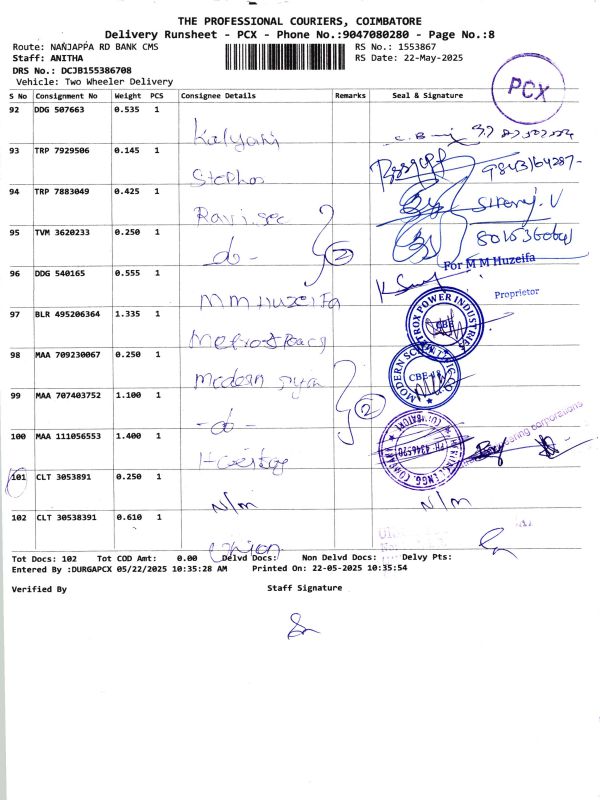 THE PROFESSIONAL COURIERS, COIMBATORE
Delivery Runsheet - PCX - Phone No.:9047080280 - Page No.:8
Route: NANJAPPA RD BANK CMS RS No.: 1553867
Staff: ANITHA RS Date: 22-May-2025
DRS No.: DCJB155386708
Vehicle: Two Wheeler Delivery
PCX
S No Consignment No Weight PCS Consignee Details Remarks Seal & Signature
92 DDG 507663 0.535 1
Kalyani
93 TRP 7929506 0.145 1
Stephos
94 TRP 7883049 0.425 1
Ravi.sec
95 TVM 3620233 0.250 1
-do- 2
96 DDG 540165 0.555 1
For M M Huzeifa
Proprietor
MM Huzeifa
97 BLR 495206364 1.335 1
METROX POWER INDUSTRIES
CBE
98 MAA 709230067 0.250 1
Modern
CBE-18
99 MAA 707403752 1.100 1
-do- 2
100 MAA 111056553 1.400 1
PH: 4346520
101 CLT 3053891 0.250 1
N/m N/m
102 CLT 30538391 0.610 1
Union
Tot Docs: 102 Tot COD Amt: 0.00 Delvd Docs: Non Delvd Docs: Delvy Pts:
Entered By :DURGAPCX 05/22/2025 10:35:28 AM Printed On: 22-05-2025 10:35:54
Verified By Staff Signature